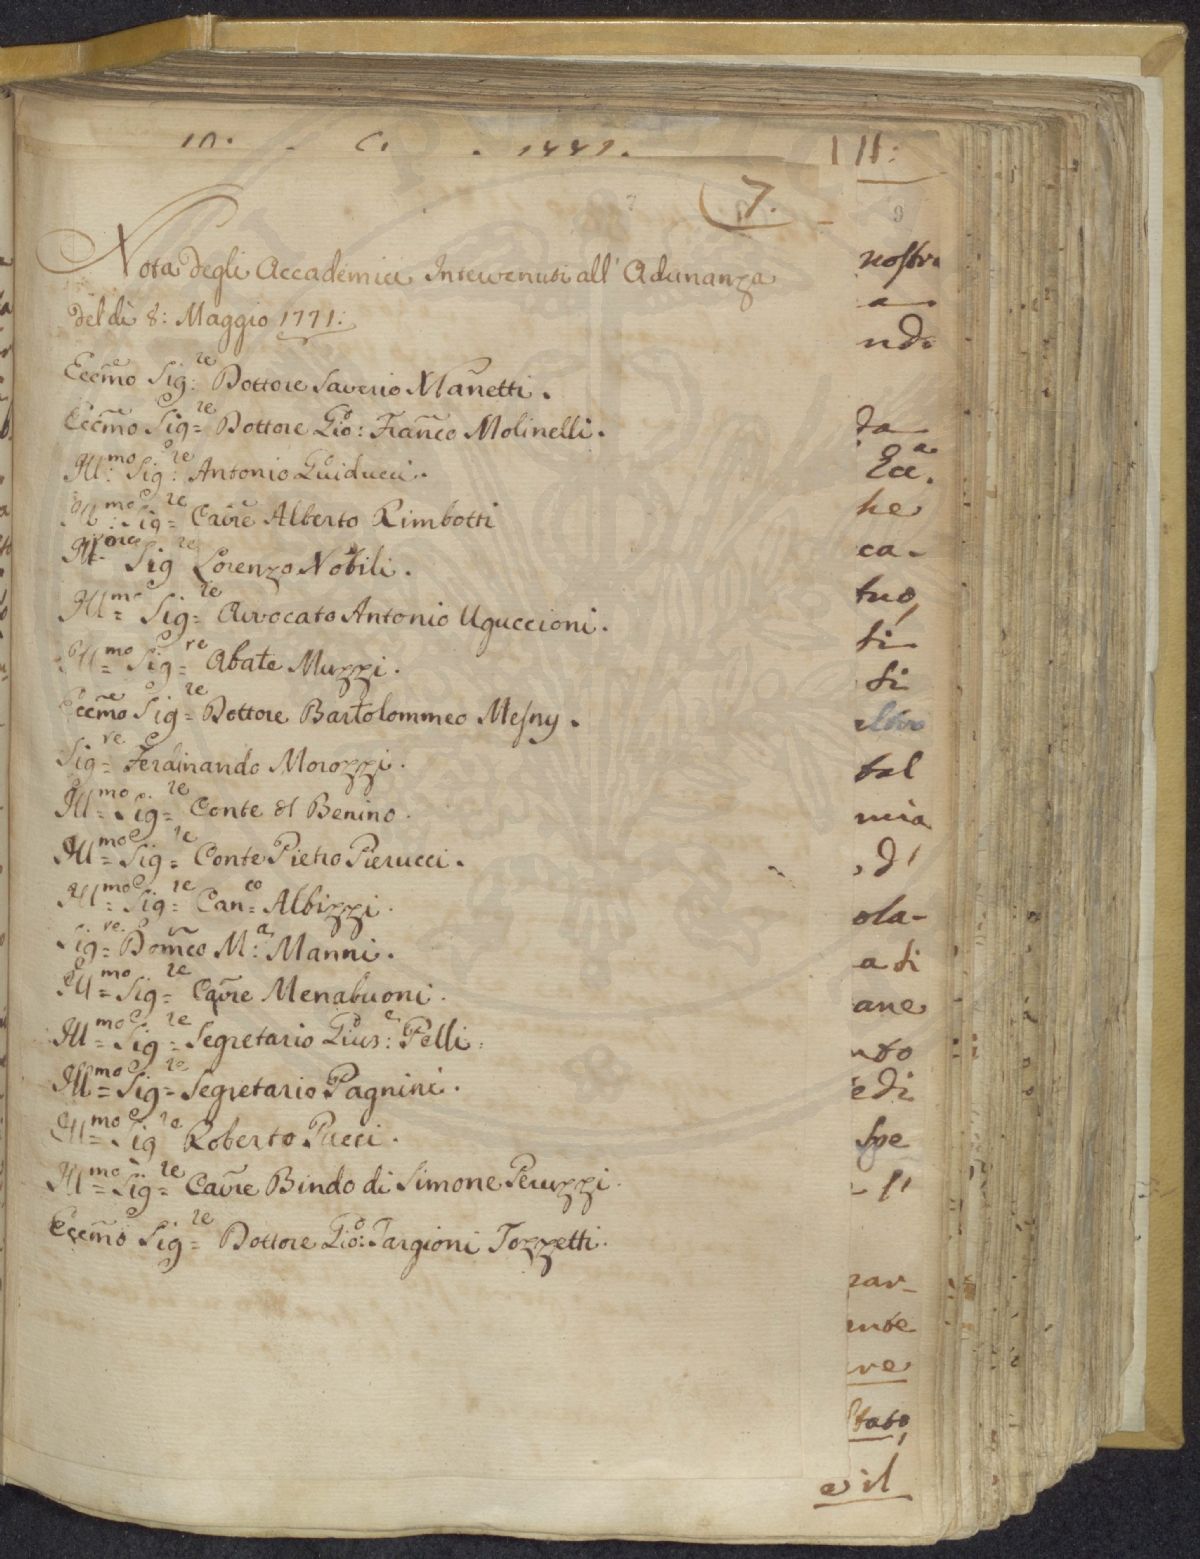 7.
Nota degli Accademici Intervenuti all' Adunanza
del dì 8: Maggio 1771:
Eccm̃o Sig:re Dottore Saverio Manetti.
Eccm̃o Sig=re Dottore Gio: Franc̃o Molinelli.
Ill:mo Sig:re Antonio Guiducci.
Ill:mo Sig=re Cavr̃e Alberto Rimbotti
Sigre Lorenzo Nobili.
Ill=mo Sig=re Avvocato Antonio Uguccioni.
Ill=mo Sig=re Abate Muzzi.
Eccm̃o Sig=re Dottore Bartolommeo Mesny.
Sig=re Ferdinando Morozzi.
Ill=mo Sig=re Conte del Benino.
Ill=mo Sig=re Conte Pietro Pierucci.
Ill=mo Sig=re Can=co Albizzi.
Sig=re Dom̃co M:a Manni.
Ill=mo Sig=re Cavr̃e Menabuoni.
Ill=mo Sig=re Segretario Gius:e Pelli:
Ill=mo Sig=re Segretario Pagnini.
Ill=mo Sigre Roberto Pucci.
Ill=mo Sig=re Cavr̃e Bindo di Simone Peruzzi.
Eccm̃o Sig=re Dottore Gio: Targioni Tozzetti.
9
nostra
a
ndo
da
Ecc.a
he
ca-
tuo,
si
si
tal
mia
, d'
ola-
a si
ane
nto
edi
spe
- l'
zar-
ente
re
stato,
e il